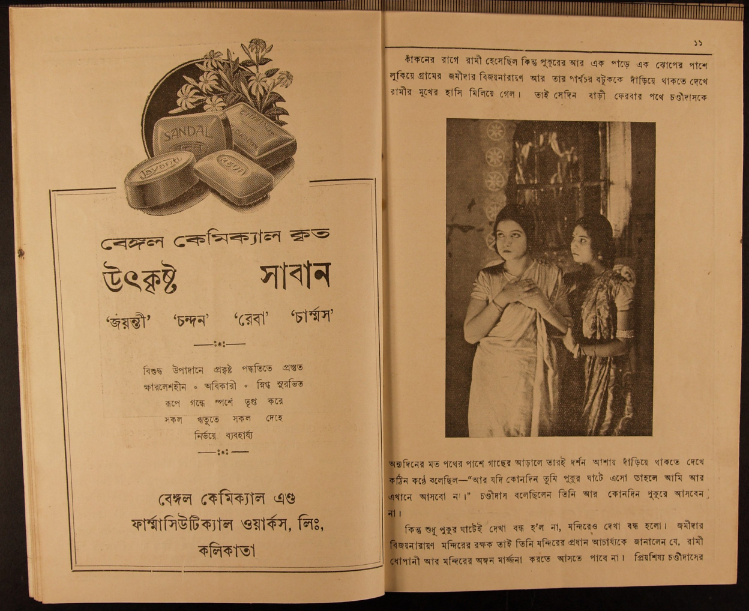 SANDAL
বেঙ্গল কেমিক্যাল কৃত
উৎকৃষ্ট সাবান
‘জয়ন্তী’ ‘চন্দন’ ‘রেবা’ ‘চার্ম্মস’
বিশুদ্ধ উপাদানে প্রকৃষ্ট পদ্ধতিতে প্রস্তুত
ক্ষারলেশহীন • অবিকারী • স্নিগ্ধ সুরভিত
রূপে গন্ধে স্পর্শে তৃপ্ত করে
সকল ঋতুতে সকল দেহে
নির্ভয়ে ব্যবহার্য্য
বেঙ্গল কেমিক্যাল এণ্ড
ফার্ম্মাসিউটিক্যাল ওয়ার্কস, লিঃ,
কলিকাতা
১১
কাঁকনের রাগে রামী হেসেছিল কিন্তু পুকুরের আর এক পাড়ে এক ঝোপের পাশে
লুকিয়ে গ্রামের জমীদার বিজয়নারায়ণ আর তার পার্শ্বচর বটুককে দাঁড়িয়ে থাকতে দেখে
রামীর মুখের হাসি মিলিয়ে গেল। তাই সেদিন বাড়ী ফেরবার পথে চণ্ডীদাসকে
অন্যদিনের মত পথের পাশে গাছের আড়ালে তারই দর্শন আশায় দাঁড়িয়ে থাকতে দেখে
কঠিন কণ্ঠে বলেছিল—“আর যদি কোনদিন তুমি পুকুর ঘাটে এসো তাহলে আমি আর
এখানে আসবো না।” চণ্ডীদাস বলেছিলেন তিনি আর কোনদিন পুকুরে আসবেন
না।
কিন্তু শুধু পুকুর ঘাটেই দেখা বন্ধ হ’ল না, মন্দিরেও দেখা বন্ধ হলো। জমীদার
বিজয়নারায়ণ মন্দিরের রক্ষক তাই তিনি মন্দিরের প্রধান আচার্য্যকে জানালেন যে, রামী
ধোপানী আর মন্দিরের অঙ্গন মার্জ্জনা করতে আসতে পাবে না। প্রিয়শিষ্য চণ্ডীদাসের